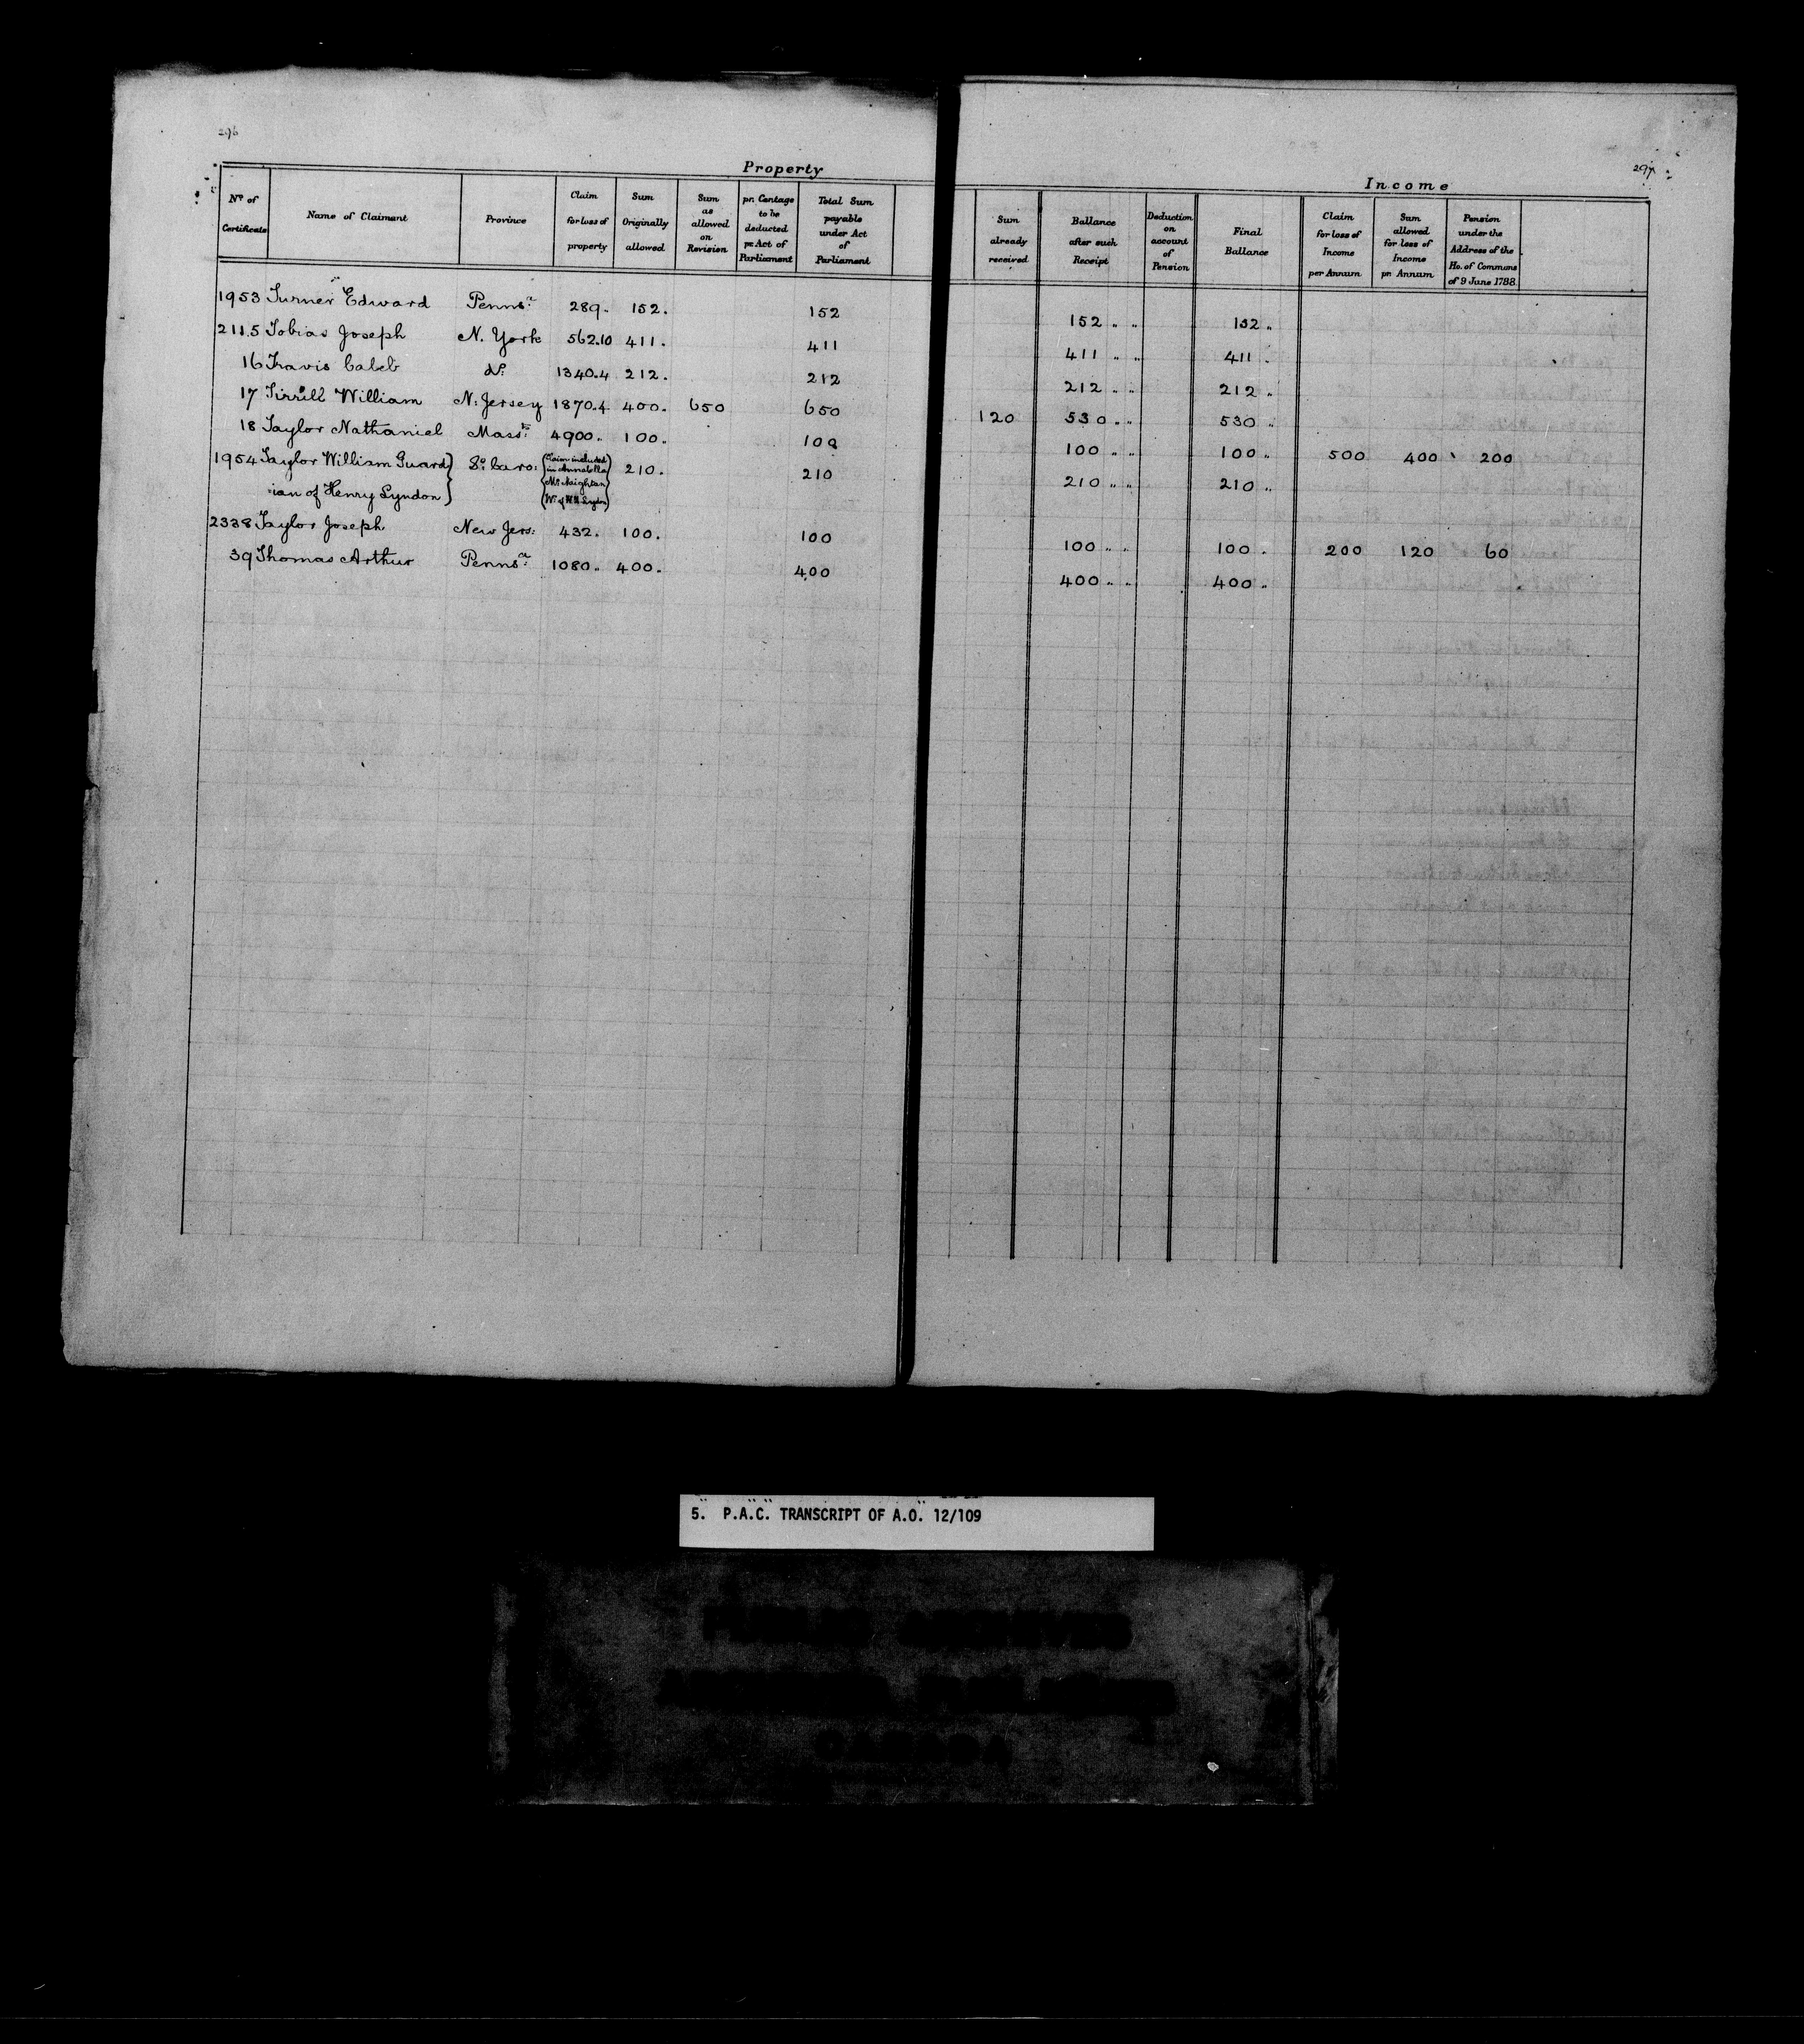 296
Property
Nº of Certificate | Name of Claimant | Province | Claim for loss of property | Sum Originally allowed | Sum as allowed on Revision | pr. Centage to be deducted pr Act of Parliament | Total Sum payable under Act of Parliament
1953 Turner Edward Pennsª 289. 152. 152
2115 Tobias Joseph N. York 562.10 411. 411
16 Travis Caleb dº 1340.4 212. 212
17 Tirrill William N: Jersey 1870.4 400. 650 650
18 Taylor Nathaniel Masstˢ: 4900. 100. 100
1954 Taylor William Guard} Sº Caro: (Claim included in Annabella Mc Neightan Wº of Hʸ Lyndon) 210. 210
ian of Henry Lyndon}
2338 Taylor Joseph New Jers: 432. 100. 100
39 Thomas Arthur Pennsª: 1080. 400. 400
297
Income
Sum already received | Ballance after such Receipt | Deduction on account of Pension | Final Ballance | Claim for loss of Income per Annum | Sum allowed for loss of Income pr. Annum | Pension under the Address of the Ho. of Commons of 9 June 1788
152 " " 152 "
411 " " 411 "
212 " " 212 "
120 530 " " 530 "
100 " " 100 " 500 400 200
210 " " 210 "
100 " " 100 " 200 120 60
400 " " 400 "
5. P.A.C. TRANSCRIPT OF A.O. 12/109
PUBLIC ARCHIVES
CANADA